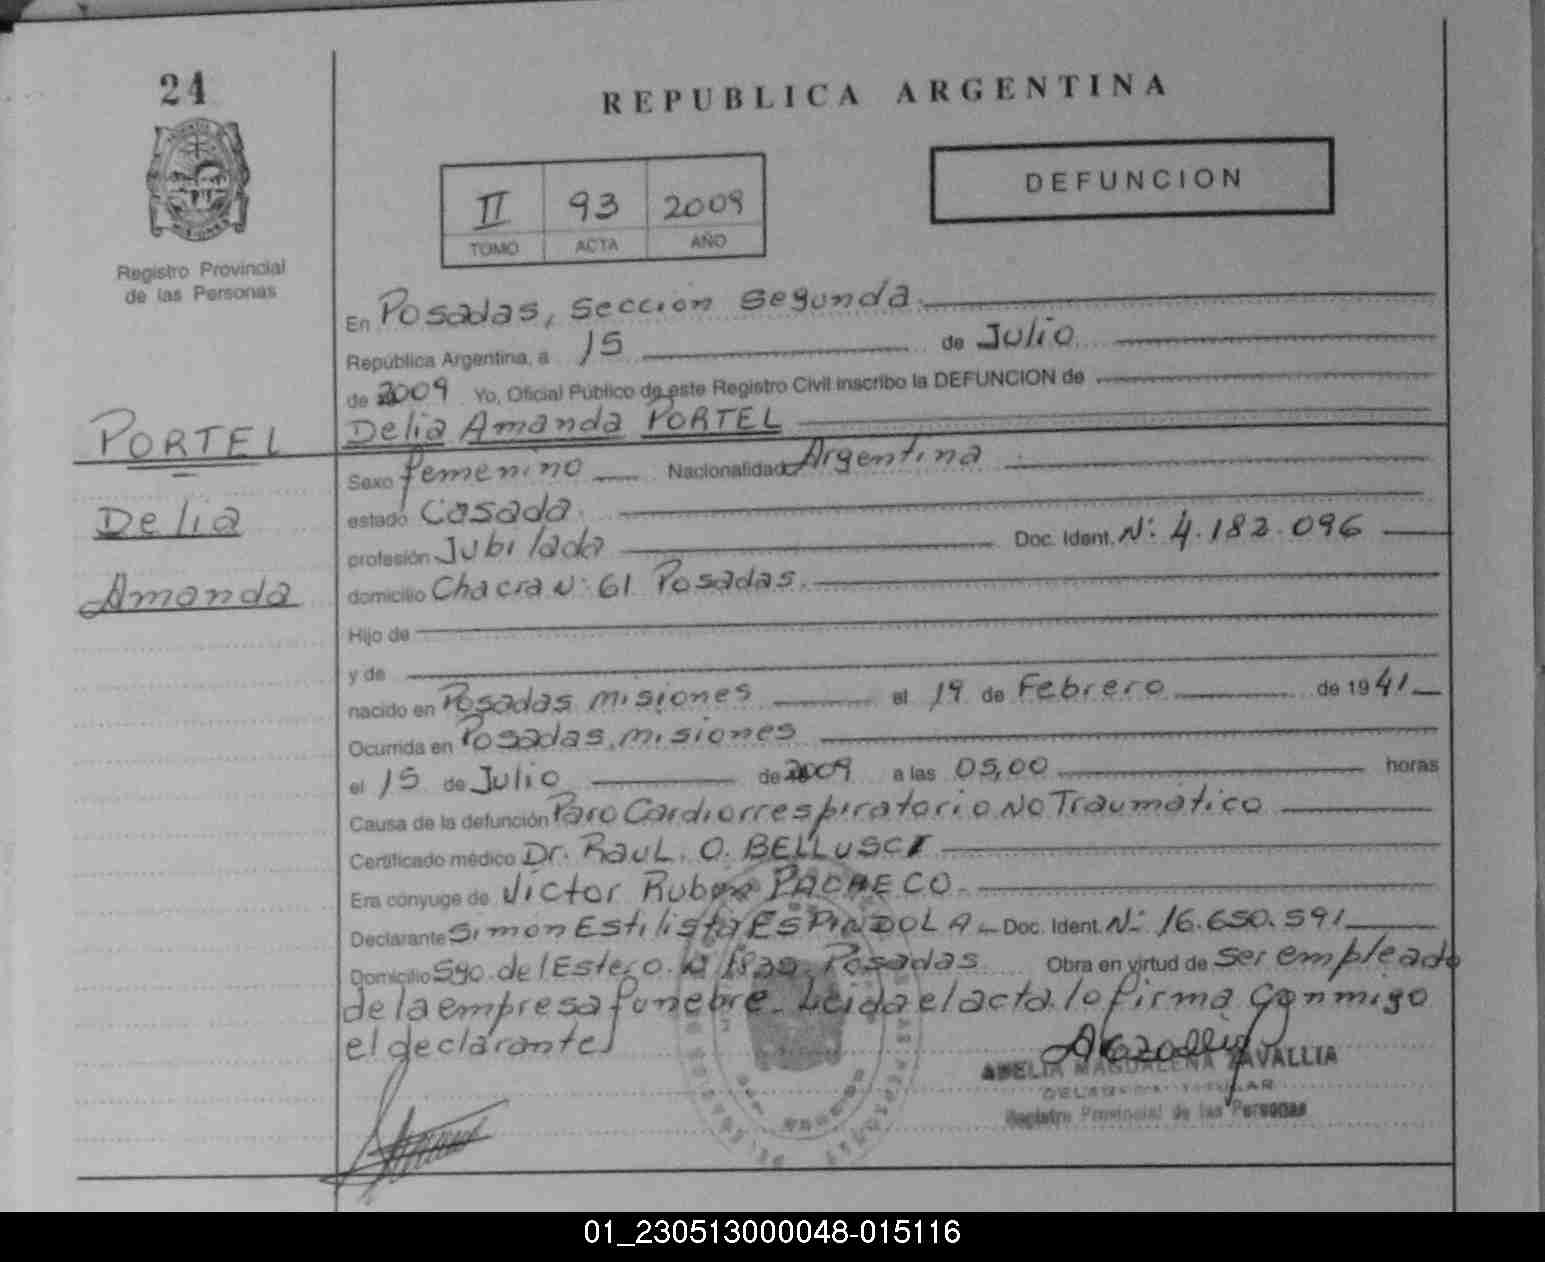 24
REPUBLICA ARGENTINA
DEFUNCION
II 93 2009
TOMO ACTA AÑO
Registro Provincial
de las Personas
En Posadas, sección segunda
República Argentina, a 15 de Julio
de 2009 Yo, Oficial Público de este Registro Civil inscribo la DEFUNCION de
PORTEL
Delia Amanda PORTEL
Sexo femenino Nacionalidad Argentina
Delia
estado Casada
profesión Jubilada Doc. Ident. Nº 4.182.096
Amanda
domicilio Chacra Nº 61 Posadas
Hijo de
y de
nacido en Posadas misiones el 19 de Febrero de 1941
Ocurrida en Posadas, misiones
el 15 de Julio de 2009 a las 05,00 horas
Causa de la defunción Paro Cardiorrespiratorio No Traumático
Certificado médico Dr. RauL. O. BELLUSCI
Era cónyuge de Víctor Rubén PACHECO
Declarante Simón Estilista ESPINDOLA Doc. Ident. Nº 16.650.591
Domicilio Sgo. del Estero. Posadas Obra en virtud de ser empleado
de la empresa funebre. Leida el acta. lo firma conmigo
el declarante
AMELIA MAGDALENA ZAVALLIA
Registro Provincial de las Personas
01_230513000048-015116